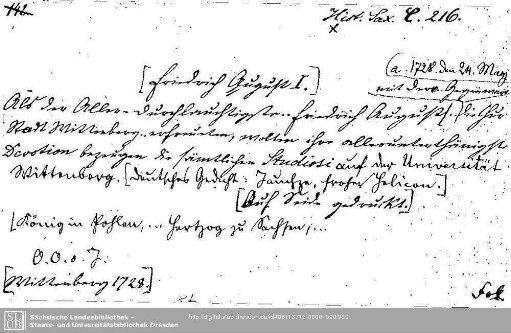 142
Hist. Sax. C. 216.
x
(a. 1728. den 24. May
[Friedrich August I.] mit dero Gegenwart
Als der Aller-Durchlauchtigste.. Friedrich August/. die Chur
Stadt Wittenberg.. erfreuten, wolten ihre allerunterthänigste
Devotion bezeugen die sämtlichen Studiosi auf der Universität
Wittenberg. [Deutsches Gedicht: Jauchze, froher Helicon.]
[Auf Seide gedruckt.]
[König in Pohlen, ... Hertzog zu Sachsen, ...
O. O. o. J.
[Wittenberg 1728.]
Fol.
SLUB
Sächsische Landesbibliothek –
Staats- und Universitätsbibliothek Dresden